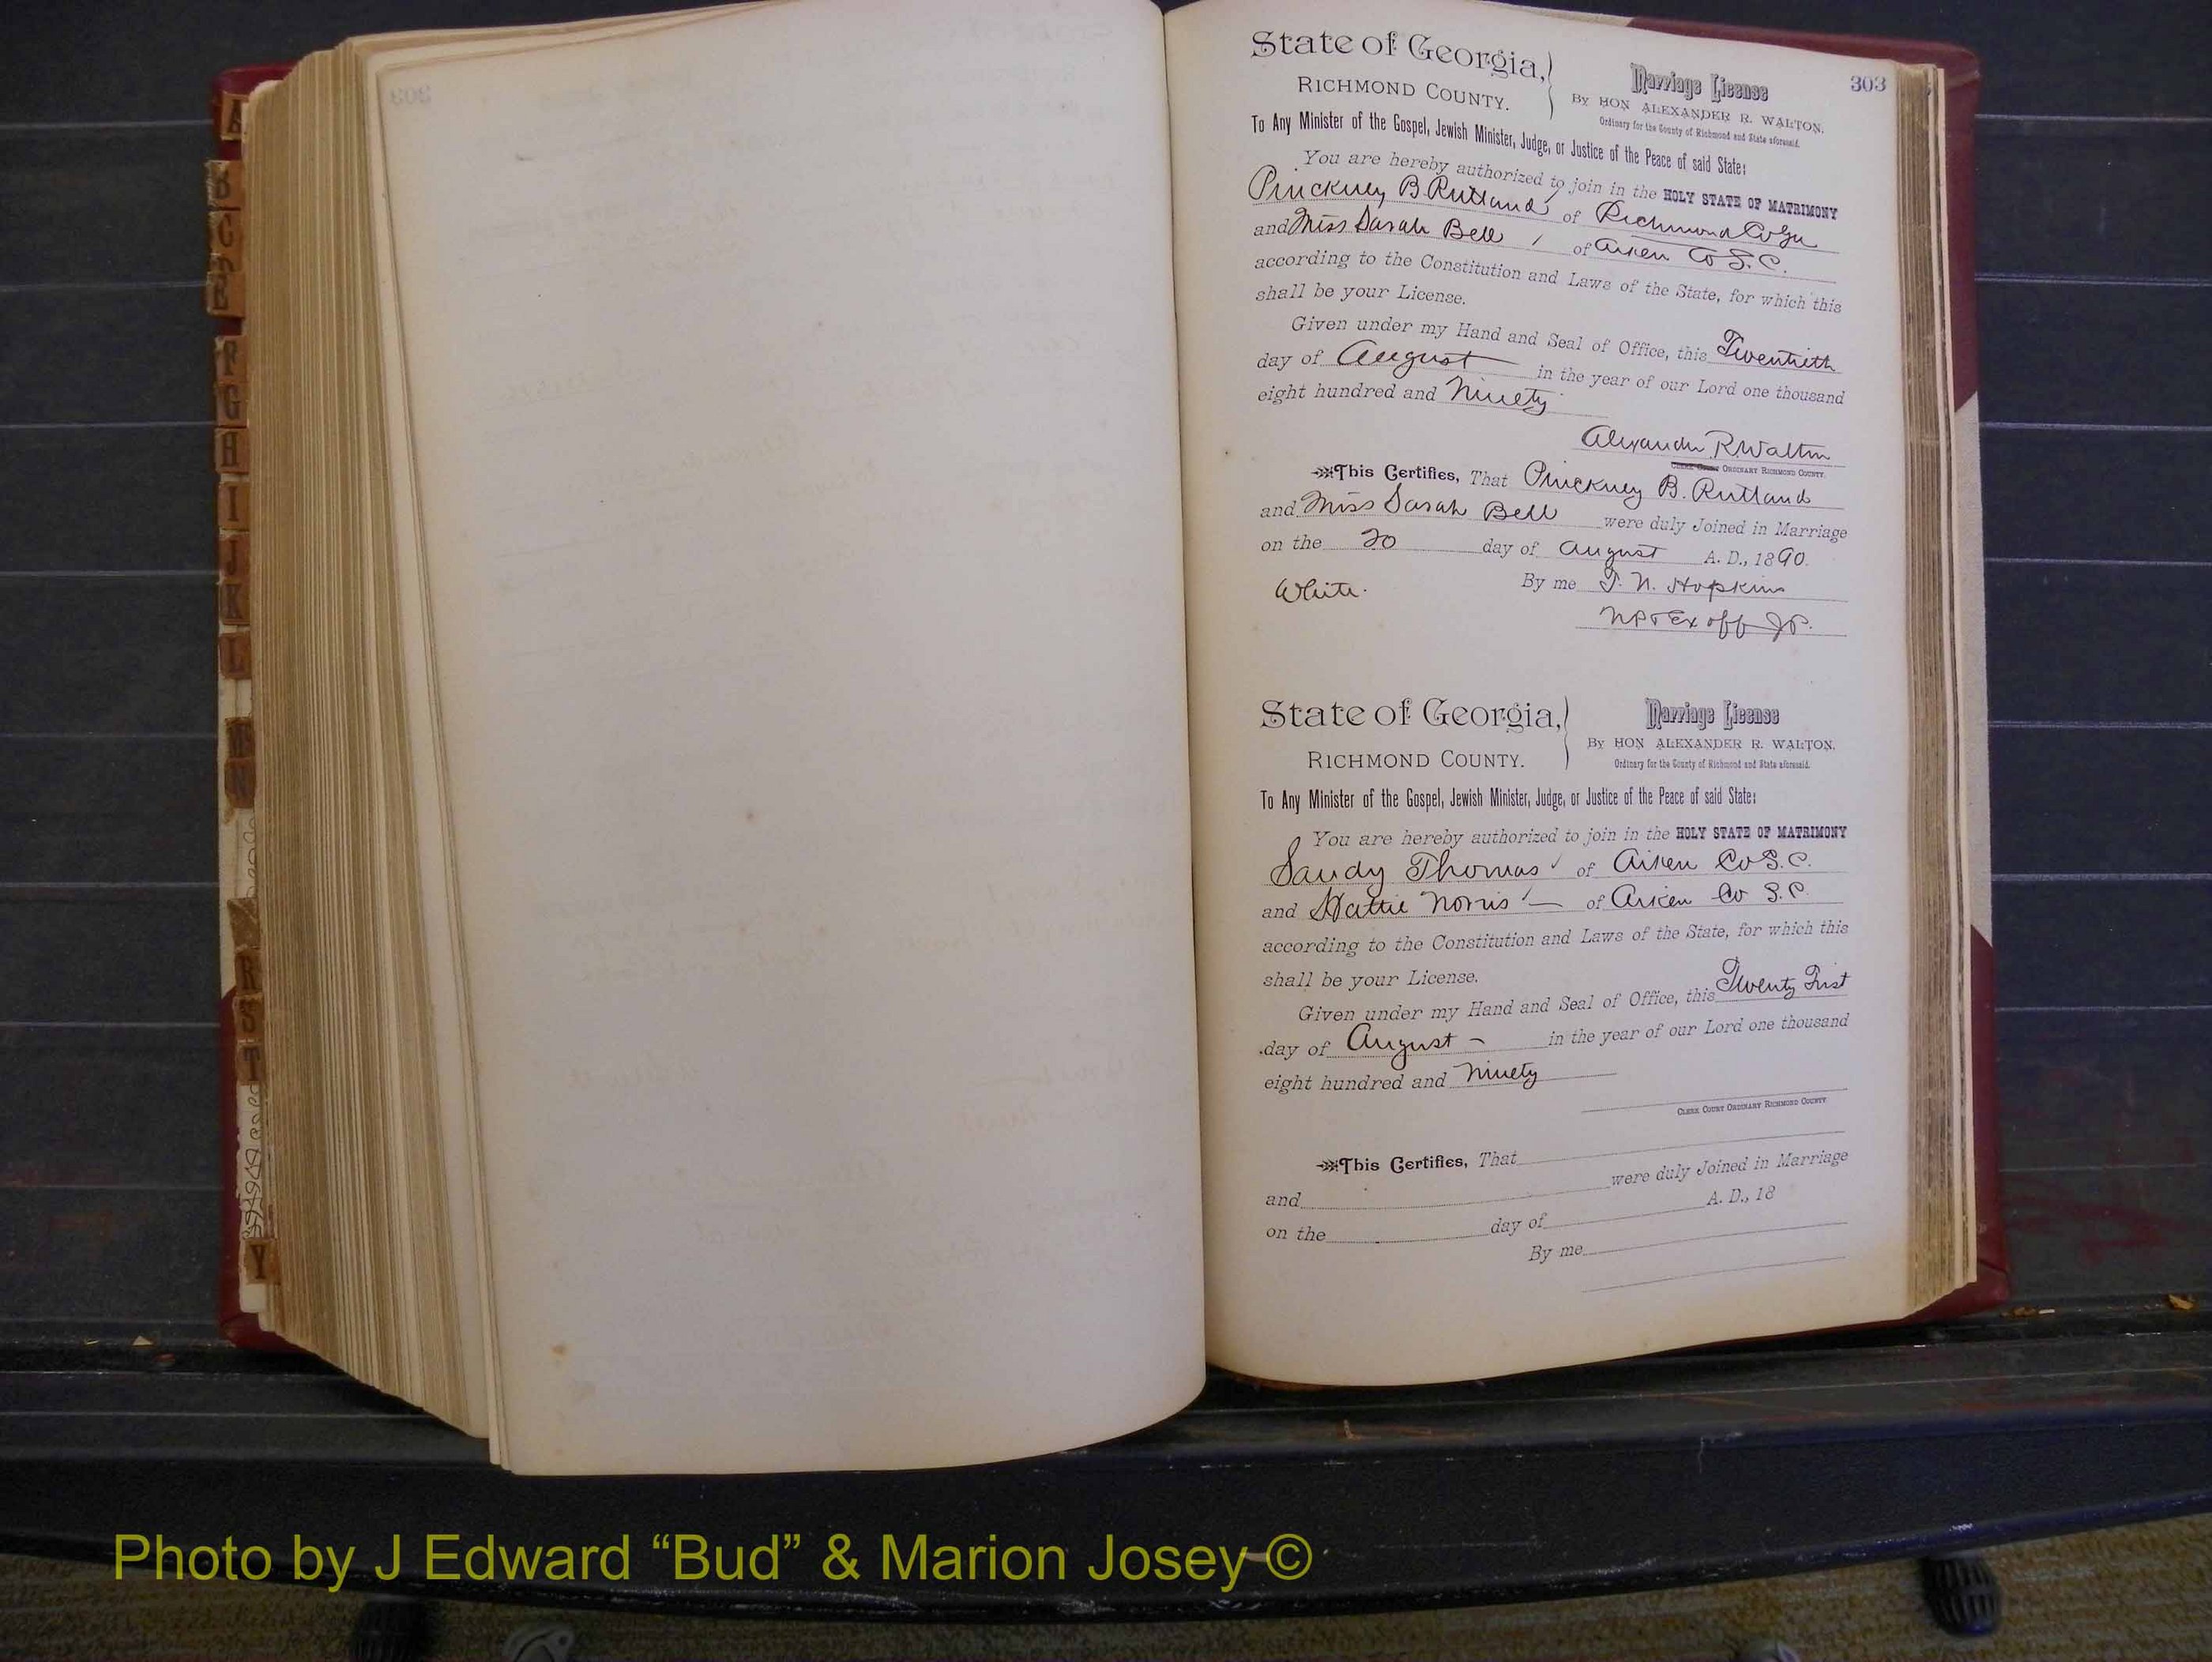 303
State of Georgia,
RICHMOND COUNTY.
Marriage License
By HON ALEXANDER R. WALTON,
Ordinary for the County of Richmond and State aforesaid.
To Any Minister of the Gospel, Jewish Minister, Judge, or Justice of the Peace of said State:
You are hereby authorized to join in the HOLY STATE OF MATRIMONY
Pinckney B. Rutland of Richmond Co Ga
and Miss Sarah Bell of Aiken Co S.C.
according to the Constitution and Laws of the State, for which this
shall be your License.
Given under my Hand and Seal of Office, this Twentieth
day of August in the year of our Lord one thousand
eight hundred and Ninety
Alexander R Walton
CLERK COURT ORDINARY RICHMOND COUNTY.
This Certifies, That Pinckney B. Rutland
and Miss Sarah Bell were duly Joined in Marriage
on the 20 day of August A. D., 1890.
White. By me T. N. Hopkins
NP & Ex off JP.
State of Georgia,
RICHMOND COUNTY.
Marriage License
By HON ALEXANDER R. WALTON,
Ordinary for the County of Richmond and State aforesaid.
To Any Minister of the Gospel, Jewish Minister, Judge, or Justice of the Peace of said State:
You are hereby authorized to join in the HOLY STATE OF MATRIMONY
Sandy Thomas of Aiken Co S.C.
and Hattie Norris — of Aiken Co S.C.
according to the Constitution and Laws of the State, for which this
shall be your License.
Given under my Hand and Seal of Office, this Twenty First
day of August - in the year of our Lord one thousand
eight hundred and Ninety
CLERK COURT ORDINARY RICHMOND COUNTY
This Certifies, That
and were duly Joined in Marriage
on the day of A. D., 18
By me
A
B
C
D
E
F
G
H
I
J
K
L
M
N
R
S
T
Y
Photo by J Edward “Bud” & Marion Josey ©